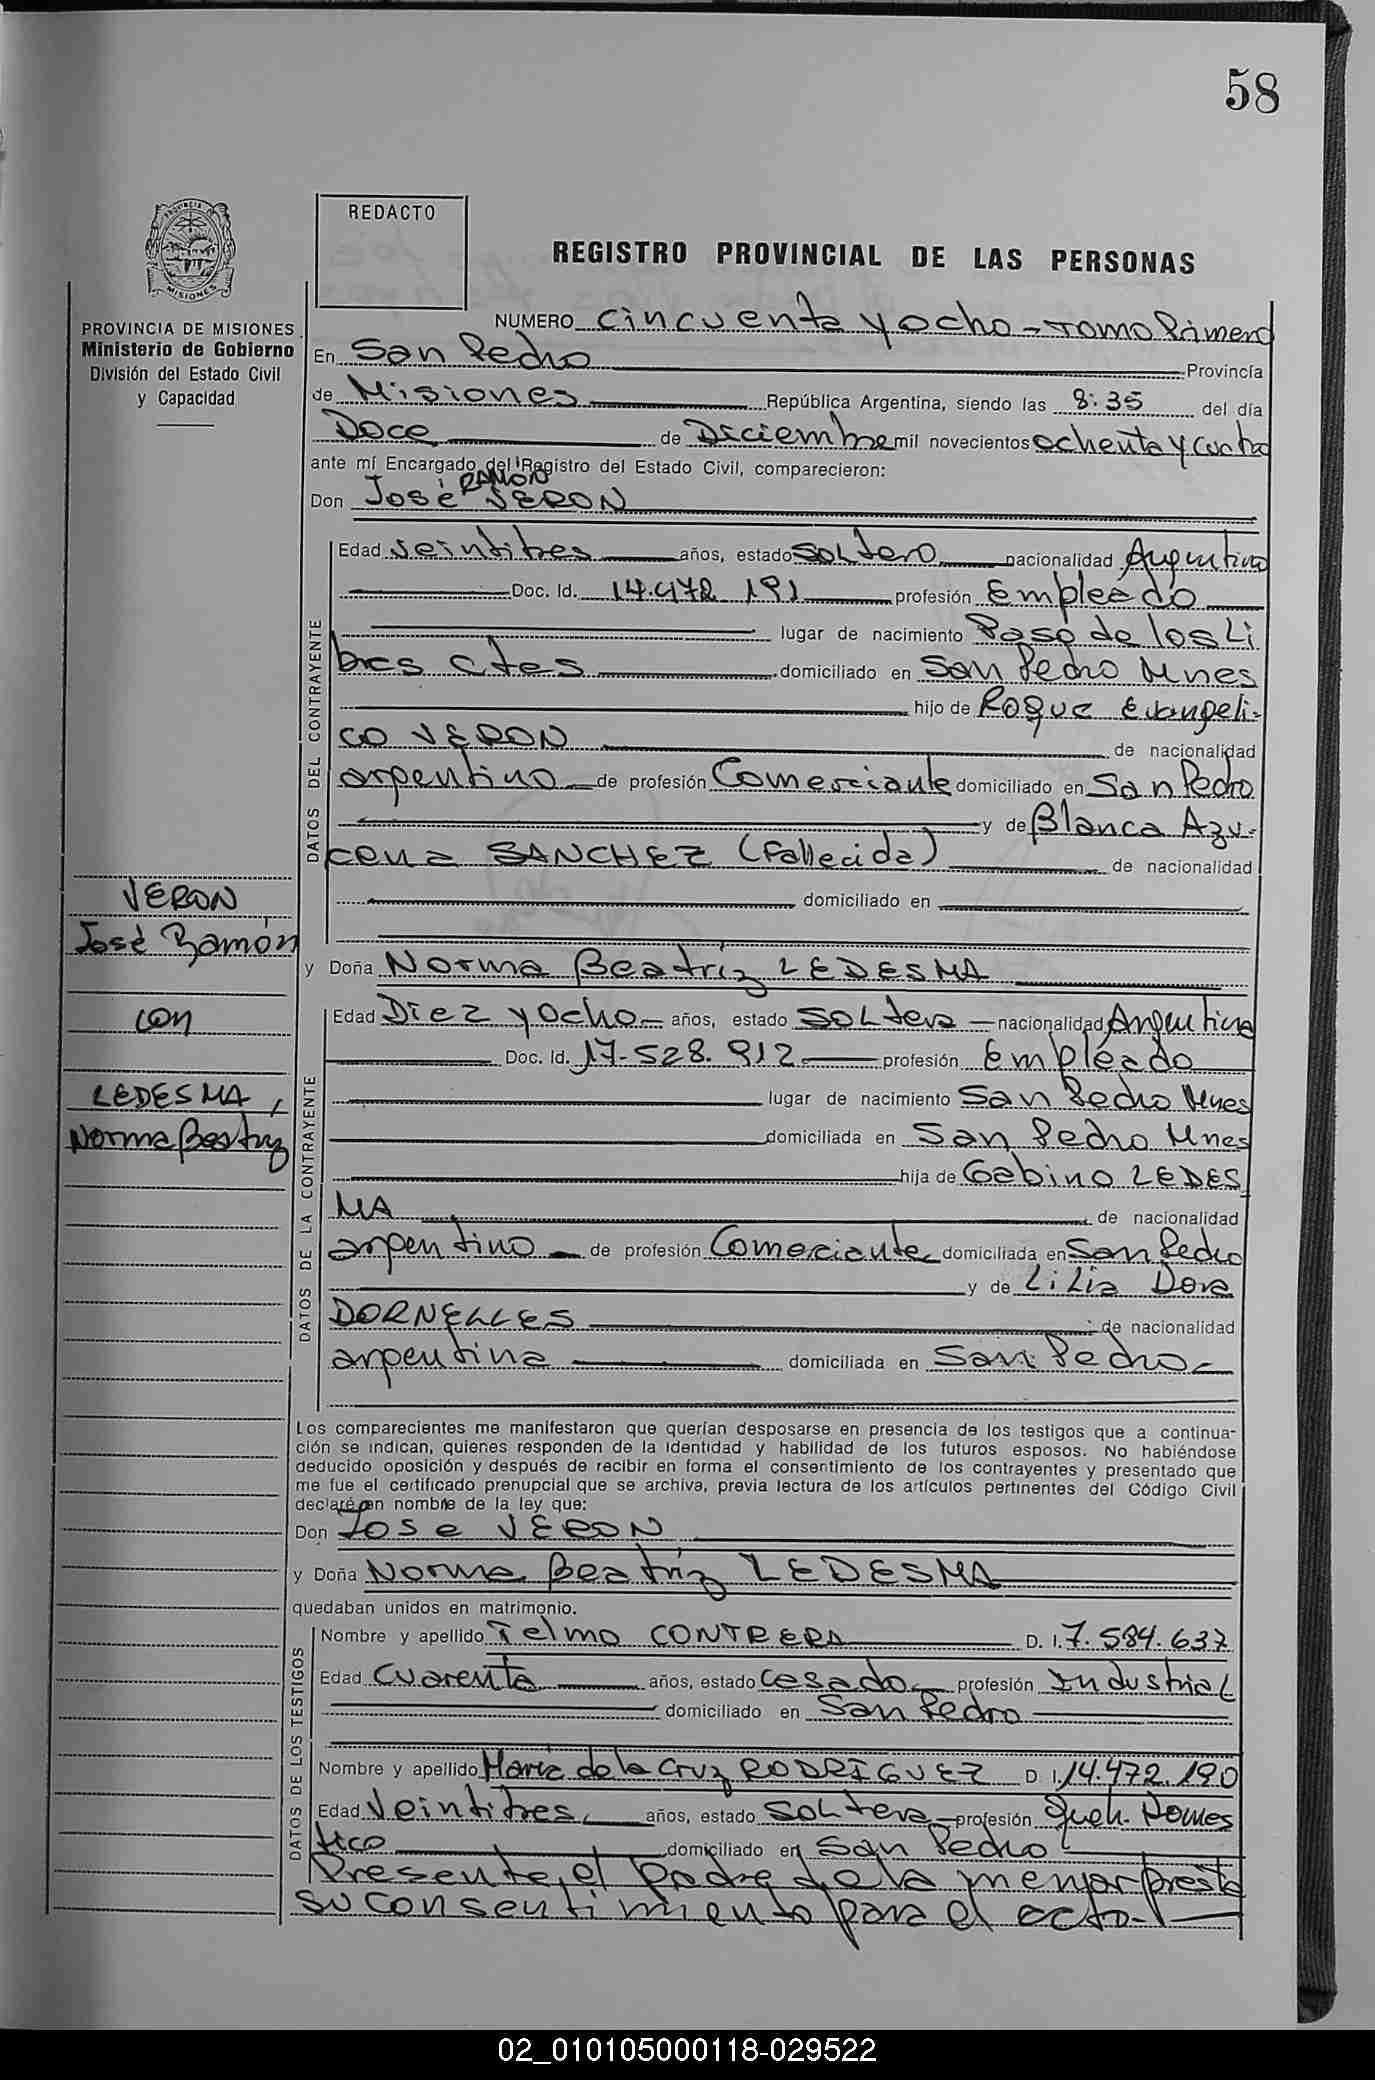 58
REDACTO
REGISTRO PROVINCIAL DE LAS PERSONAS
MISIONES
PROVINCIA DE MISIONES
Ministerio de Gobierno
División del Estado Civil
y Capacidad
NUMERO cincuenta y ocho - Tomo Primero
En San Pedro Provincia
de Misiones República Argentina, siendo las 8:35 del día
Doce de Diciembre mil novecientos ochenta y cuatro
ante mí Encargado del Registro del Estado Civil, comparecieron:
RAMON
Don José VERON
DATOS DEL CONTRAYENTE
Edad veintitres años, estado soltero nacionalidad Argentino
Doc. Id. 14.472.191 profesión Empleado
lugar de nacimiento Paso de los Li
bres Ctes domiciliado en San Pedro Mnes
hijo de Roque Evangeli-
co VERON de nacionalidad
argentino de profesión Comerciante domiciliado en San Pedro
y de Blanca Azu-
cena SANCHEZ (Fallecida) de nacionalidad
domiciliado en
VERON
José Ramón
con
LEDESMA,
Norma Beatriz
y Doña Norma Beatriz LEDESMA
DATOS DE LA CONTRAYENTE
Edad Diez y ocho - años, estado soltera - nacionalidad Argentina
Doc. Id. 17-528.912 profesión Empleado
lugar de nacimiento San Pedro Mnes
domiciliada en San Pedro Mnes
hija de Gabino LEDES
MA de nacionalidad
argentino - de profesión Comerciante domiciliada en San Pedro
y de Lilia Dora
DORNELLES de nacionalidad
argentina domiciliada en San Pedro -
Los comparecientes me manifestaron que querían desposarse en presencia de los testigos que a continua-
ción se indican, quienes responden de la identidad y habilidad de los futuros esposos. No habiéndose
deducido oposición y después de recibir en forma el consentimiento de los contrayentes y presentado que
me fue el certificado prenupcial que se archiva, previa lectura de los artículos pertinentes del Código Civil
declaré en nombre de la ley que:
Don Jose VERON
y Doña Norma Beatriz LEDESMA
quedaban unidos en matrimonio.
DATOS DE LOS TESTIGOS
Nombre y apellido Telmo CONTRERA D. I. 7.584.637
Edad Cuarenta años, estado casado - profesión Industrial
domiciliado en San Pedro
Nombre y apellido María de la Cruz RODRIGUEZ D I. 14.472.190
Edad Veintitres años, estado soltera - profesión Queh. Domes
tico domiciliado en San Pedro
Presente el padre de la menor presta
su consentimiento para el acto.-
02_010105000118-029522